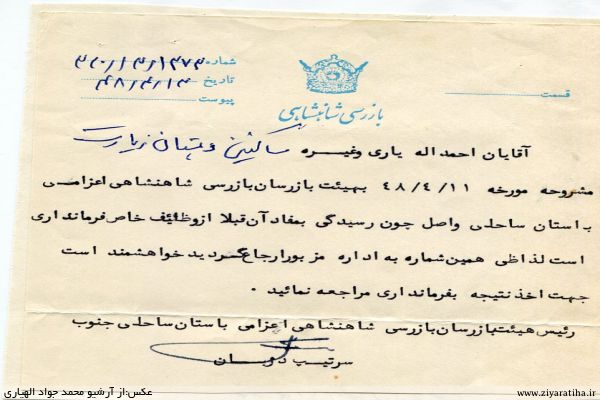 بازرسی شاهنشاهی
شماره ۳۰/۱۳/۱۳۷۳
تاریخ ۴۸/۴/۱۳
پیوست
قسمت
آقایان احمداله یاری وغیره ساکنین دهستان زیارت
مشروحه مورخه ۴۸/۴/۱۱ بهیئت بازرسان بازرسی شاهنشاهی اعزامی
باستان ساحلی واصل چون رسیدگی بمفاد آن قبلا ازوظائف خاص فرمانداری
است لذا طی همین شماره به اداره مزبور ارجاع گردید خواهشمند است
جهت اخذ نتیجه بفرمانداری مراجعه نمائید .
رئیس هیئت بازرسان بازرسی شاهنشاهی اعزامی باستان ساحلی جنوب
سرتیپ
عکس:از آرشیو محمد جواد الهیاری
www.ziyaratiha.ir